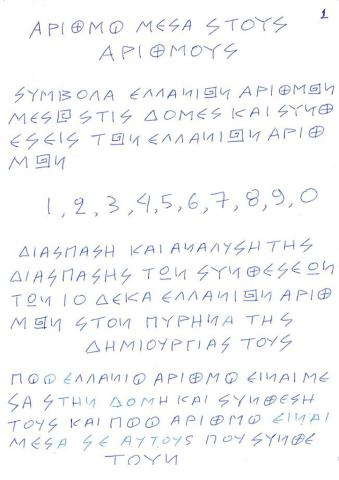 1
ΑΡΙΘΜΟ ΜΕΣΑ ΣΤΟΥΣ
ΑΡΙΘΜΟΥΣ
ΣΥΜΒΟΛΑ ΕΛΛΑΝΙΩΝ ΑΡΙΘΜΩΝ
ΜΕΣΩ ΣΤΙΣ ΔΟΜΕΣ ΚΑΙ ΣΥΝΘ
ΕΣΕΙΣ ΤΩΝ ΕΛΛΑΝΙΩΝ ΑΡΙΘ
ΜΩΝ
1, 2, 3, 4, 5, 6, 7, 8, 9, 0
ΔΙΑΣΠΑΣΗ ΚΑΙ ΑΝΑΛΥΣΗ ΤΗΣ
ΔΙΑΣΠΑΣΗΣ ΤΩΝ ΣΥΝΘΕΣΕΩΝ
ΤΩΝ 10 ΔΕΚΑ ΕΛΛΑΝΙΩΝ ΑΡΙΘ
ΜΩΝ ΣΤΟΝ ΠΥΡΗΝΑ ΤΗΣ
ΔΗΜΙΟΥΡΓΙΑΣ ΤΟΥΣ
ΠΟΟ ΕΛΛΑΝΙΟ ΑΡΙΘΜΟ ΕΙΝΑΙ ΜΕ
ΣΑ ΣΤΗΝ ΔΟΜΗ ΚΑΙ ΣΥΝΘΕΣΗ
ΤΟΥΣ ΚΑΙ ΠΟΟ ΑΡΙΘΜΟ ΕΙΝΑΙ
ΜΕΣΑ ΣΕ ΑΥΤΟΥΣ ΠΟΥ ΣΥΝΘΕ
ΤΟΥΝ